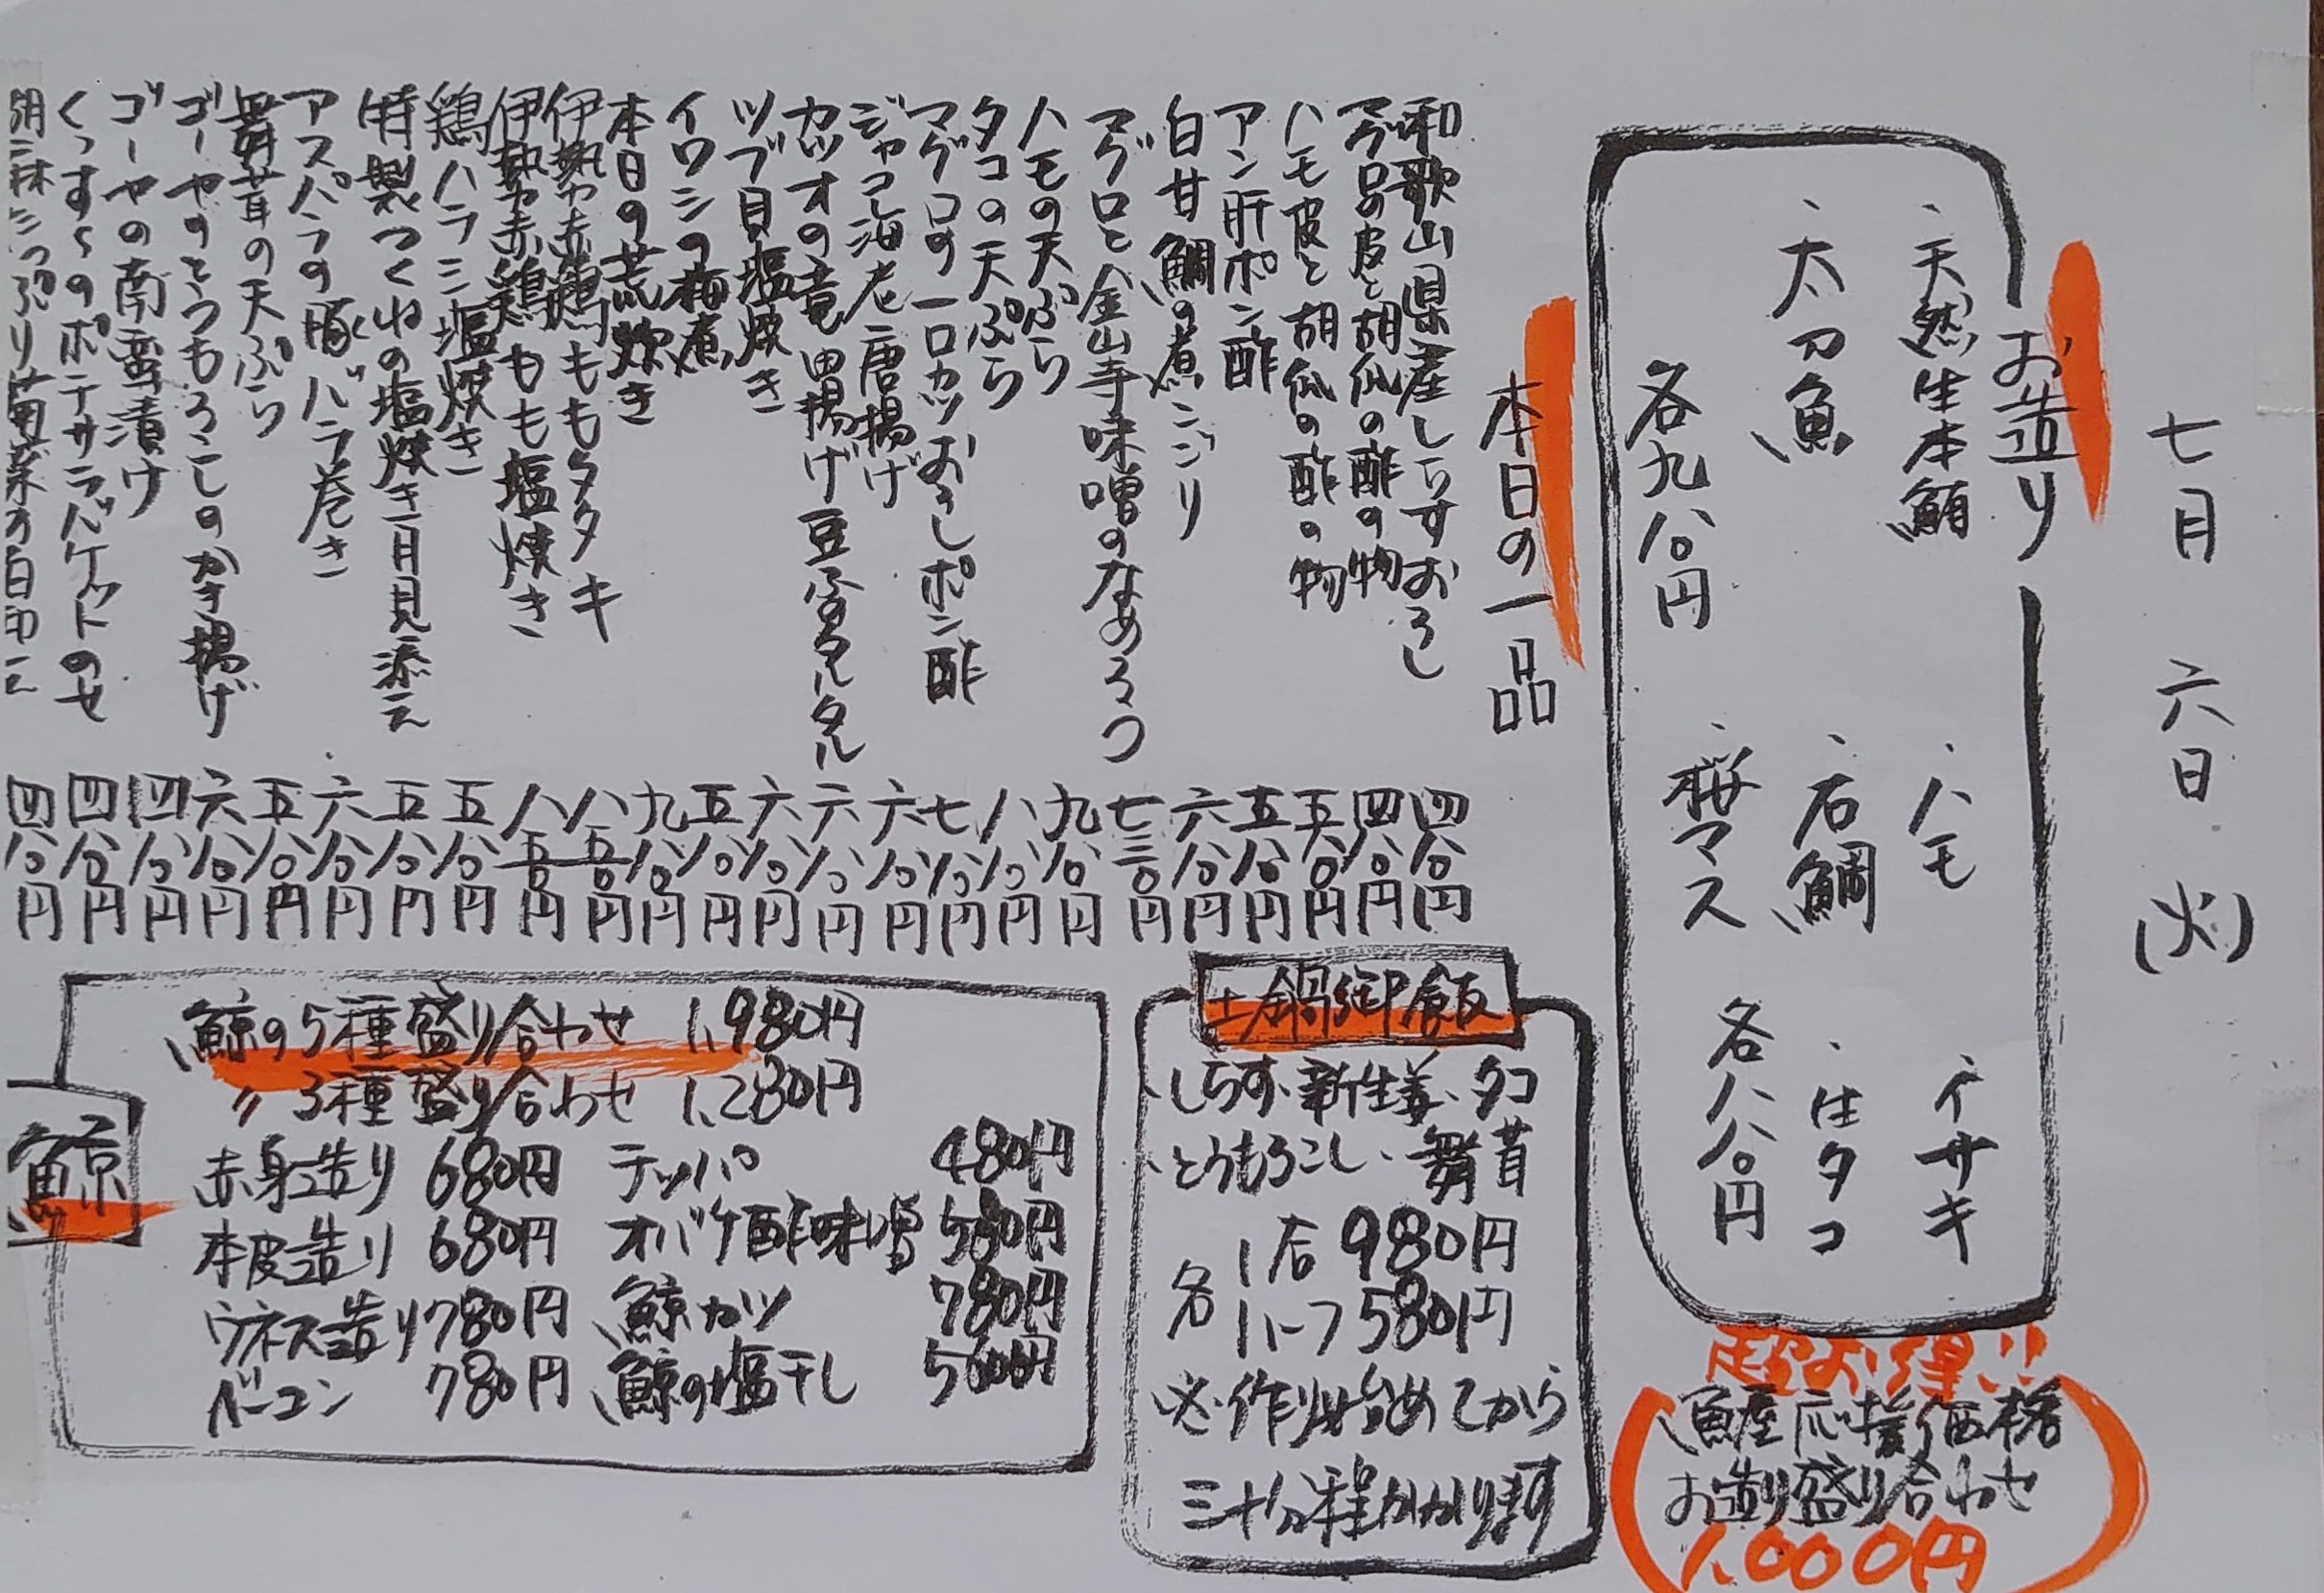 七月 六日 (火)
お造り
・天然生本鮪 ・ハモ ・イサキ
・太刀魚 ・石鯛 ・生タコ
各九八〇円 ・桜マス 各八八〇円
超お得!!
魚屋応援価格
お造り盛り合わせ
1,000円
本日の一品
和歌山県産しらすおろし 四八〇円
マグロの皮と胡瓜の酢の物 四八〇円
ハモ皮と胡瓜の酢の物 五八〇円
アン肝ポン酢 五八〇円
白甘鯛の煮こごり 六八〇円
マグロと金山寺味噌のなめろう 七三〇円
ハモの天ぷら 九八〇円
タコの天ぷら 八八〇円
マグロの一口カツおろしポン酢 七八〇円
ジャコ海老唐揚げ 六八〇円
カツオの竜田揚げ豆ふタルタル 六八〇円
ツブ貝塩焼き 六八〇円
イワシの梅煮 五八〇円
本日の荒炊き 九八〇円
伊勢赤鶏ももタタキ 八五〇円
伊勢赤鶏もも塩焼き 八五〇円
鶏ハラミ塩焼き 五八〇円
特製つくねの塩焼き月見添え 五八〇円
アスパラの豚バラ巻き 六八〇円
舞茸の天ぷら 五八〇円
ゴーヤのとうもろこしのかき揚げ 六八〇円
ゴーヤの南蛮漬け 四八〇円
くっすくのポテサラバケットのせ 四八〇円
胡麻たっぷり菊菜の白和え 四八〇円
土鍋御飯
・しらす・新生姜・タコ
・とうもろこし・舞茸
各 1合 980円
1ハーフ 580円
※作り始めてから
三十分程かかります
鯨
鯨の5種盛り合わせ 1,980円
〃 3種盛り合わせ 1,280円
赤身造り 680円 テッパ 480円
本皮造り 680円 オバケ酢味噌 580円
ウネス造り 780円 鯨カツ 780円
ベーコン 780円 鯨の塩干し 500円